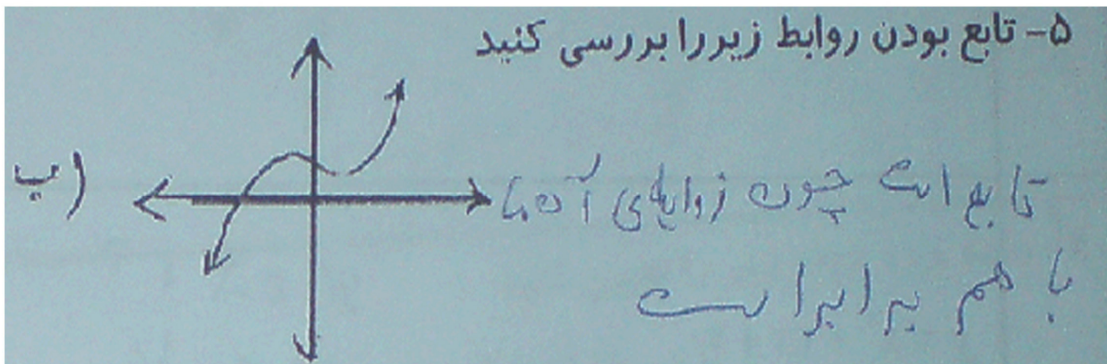 ۵- تابع بودن روابط زیر را بررسی کنید
ب)
تابع است چون زوایای آن ها
با هم برابر است